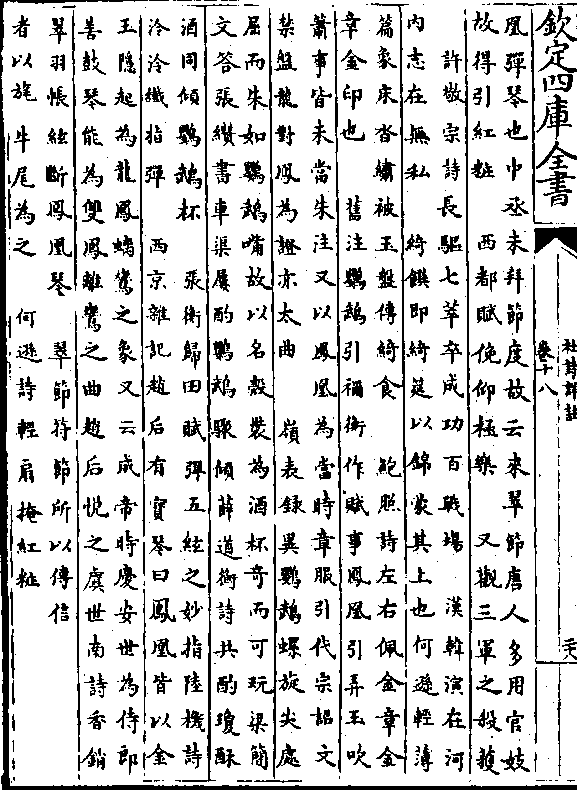 欽定四庫全書
杜詩詳註
卷十八
二十八
凰彈琴也中丞未拜節度故云來翠節唐人多用官妓
故得引紅粧　西都賦俛仰極樂　又觀三軍之殺獲
許敬宗詩長驅七萃卒成功百戰場　漢韓演在河
内志在無私　綺饌即綺筵以錦蒙其上也何遜輕薄
篇象床沓繡被玉盤傳綺食　鮑照詩左右佩金章金
章金印也　舊注鸚鵡引禰衡作賦事鳳凰引弄玉吹
蕭事皆未當朱注又以鳳凰為當時章服引代宗詔文
禁盤龍對鳳為證亦太曲　嶺表録異鸚鵡螺旋尖處
屈而朱如鸚鵡嘴故以名殼裝為酒杯奇而可玩梁簡
文答張纘書車渠屢酌鸚鵡驟傾薛道衡詩共酌瓊酥
酒同傾鸚鵡杯　張衡歸田賦彈五絃之妙指陸機詩
泠泠纖指彈　西京雜記趙后有寳琴曰鳳凰皆以金
玉隠起為龍鳳螭鸞之象又云成帝時慶安世為侍郎
善鼓琴能為雙鳳離鸞之曲趙后悦之虞世南詩香銷
翠羽帳絃斷鳳凰琴　翠節符節所以傳信
者以旄牛尾為之　何遜詩輕扇掩紅粧